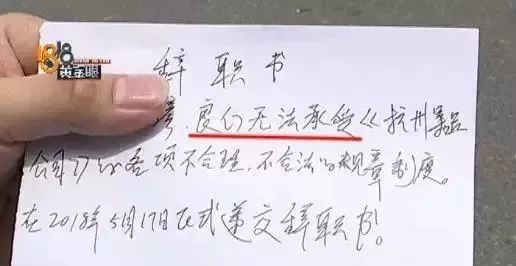 1818
黄金眼
辞职书
良心无法承受《杭州 品
公司》的各项不合理、不合法的规章制度。
在2018年5月17日正式递交辞职书!